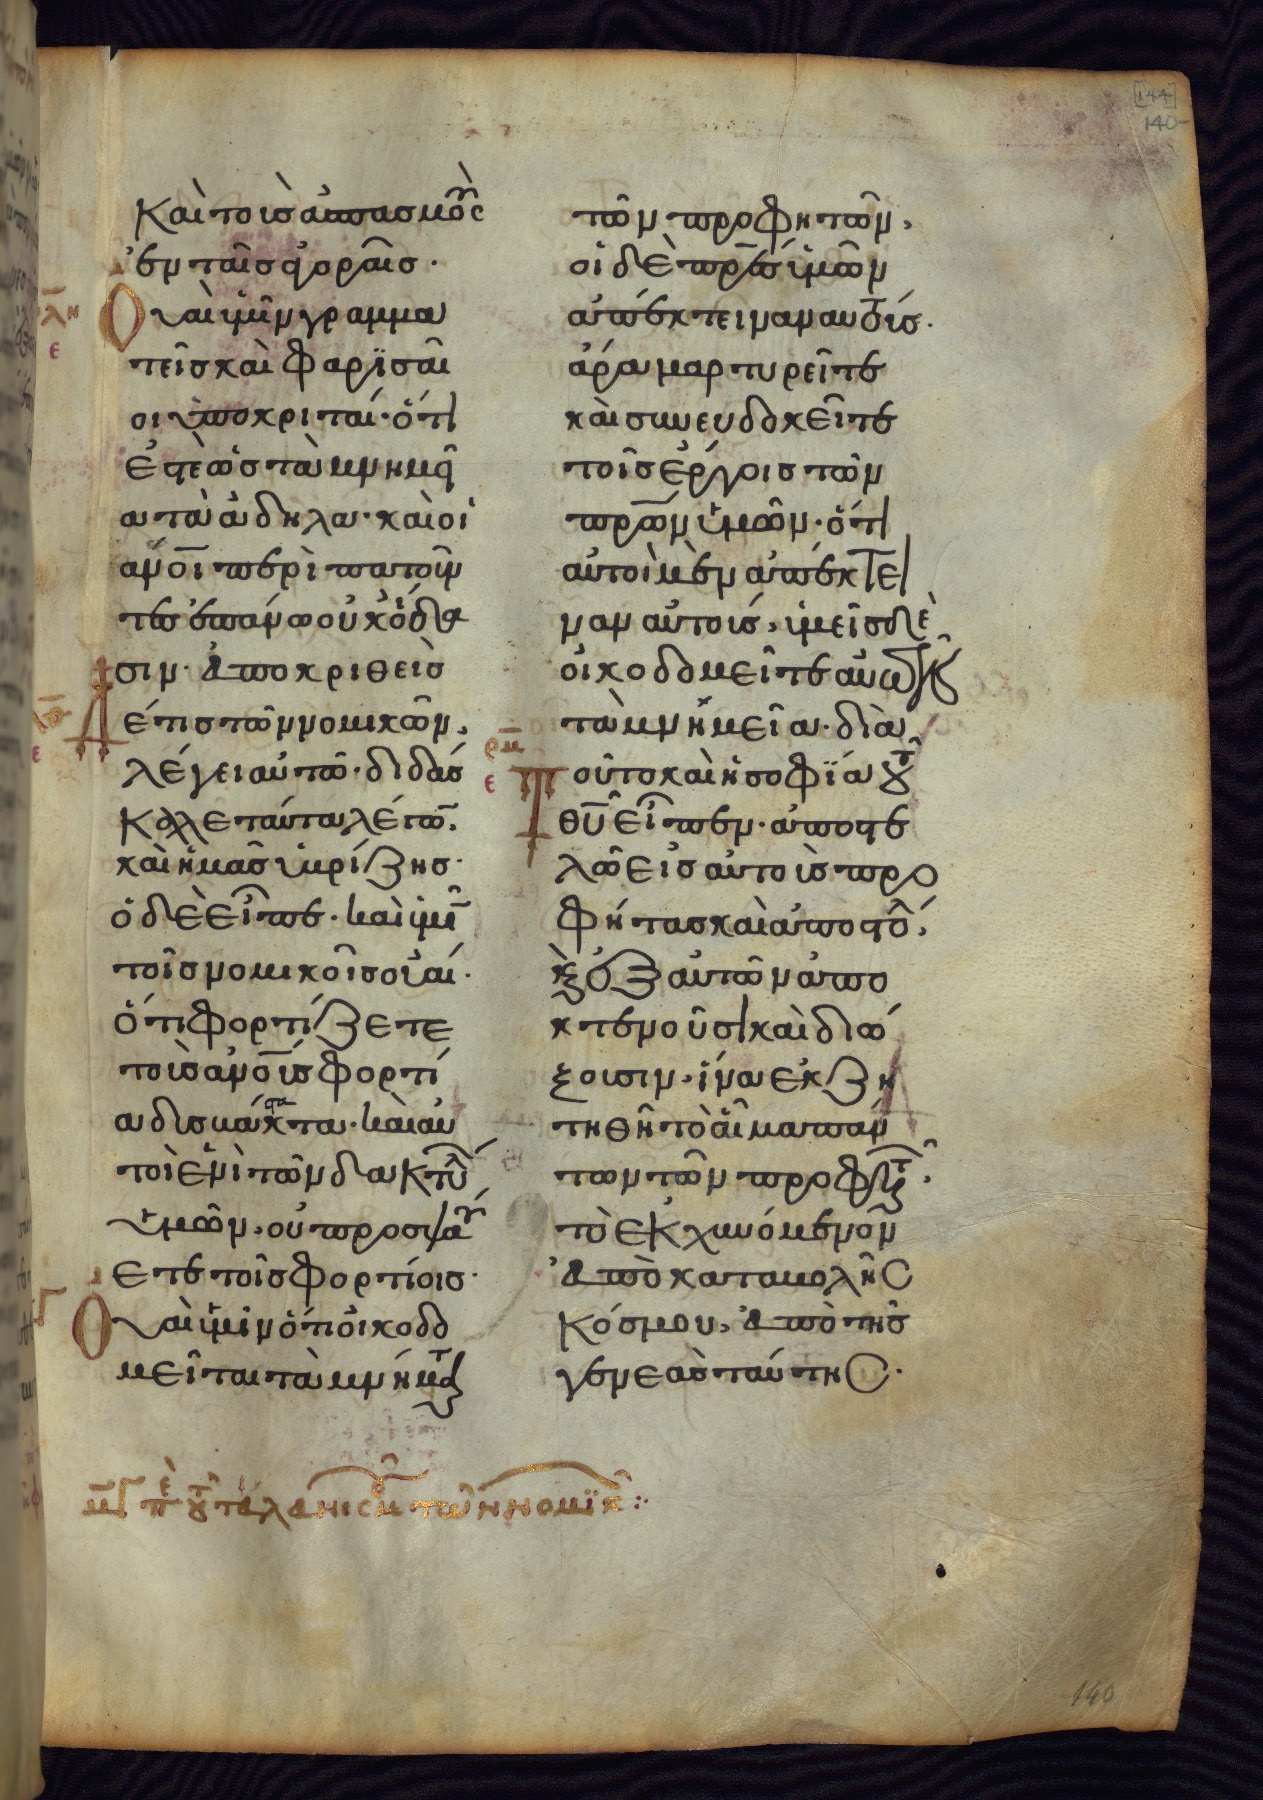 [144]
140
Καὶ τοὺσ ἀσπασμοὺς
ἐν ταῖσ ἀγοραῖσ.
Οὐαὶ ὑμῖν γραμμα
τεῖσ καὶ Φαρϊσαῖ
οι ὑποκριταί· ὅτι
ἐστὲ ὡσ τὰ μνημεῖ
α τὰ ἄδηλα· καὶ οἱ
ἄνο̅ι περιπατοῦν
τεσ ἐπάνω οὐκ οἴδα
σιν· Ἀποκριθεὶσ
λθ
ε
δέ τισ τῶν νομικῶν,
λέγει αὐτῶ· διδάσ
Καλε ταῦτα λέγων,
καὶ ἡμᾶσ ὑβρίζησ·
ὁ δὲ εἶπε· Καὶ ὑμῖν
τοῖσ νομικοῖσ οὐαί·
ὅτι φορτίζετε
τοὺσ ἀνο̅υσ φορτί
α δυσβάστακτα· Καὶ αὐ
τοὶ ἑνὶ τῶν δακτύλων
ὑμῶν, οὐ προσψαύ
ετε τοῖσ φορτίοισ·
Οὐαὶ ὑμῖν ὅτι οἰκοδο
μεῖται τὰ μνημεῖα
τῶν προφητῶν,
οἱ δὲ πρ̅εσ ὑμῶν
ἀπέκτειναν αὐτούσ.
ἄρα μαρτυρεῖτε
καὶ συνευδοκεῖτε
τοῖσ ἔργοισ τῶν
πρ̅ων ὑμῶν· ὅτι
αὐτοὶ μὲν ἀπέκτει
ναν αὐτούσ, ὑμεῖσ δὲ
οἰκοδομεῖτε αὐτῶν
τὰ μνημεῖα· διὰ
ρμ
ε
Τοῦτο καὶ ἡ σοφΐα τοῦ
θυ̅ εἶπεν· ἀποστε
λῶ εἰσ αὐτοὺσ προ
φήτασ καὶ ἀποστόλουσ,
καὶ ἐξ αὐτῶν ἀπο
κτενοῦσι καὶ διώ
ξουσιν, ἵνα ἐκζη
τηθῆ τὸ αἷμα πάν
των τῶν προφητῶν,
τὸ ἐκχυνόμενον
Ἀπὸ καταβολῆς
Κόσμου, Ἀπὸ τῆσ
γενεᾶσ ταύτης·
μγ πε τοῦ ταλανισμοῦ τῶν νομϊκῶν:
140